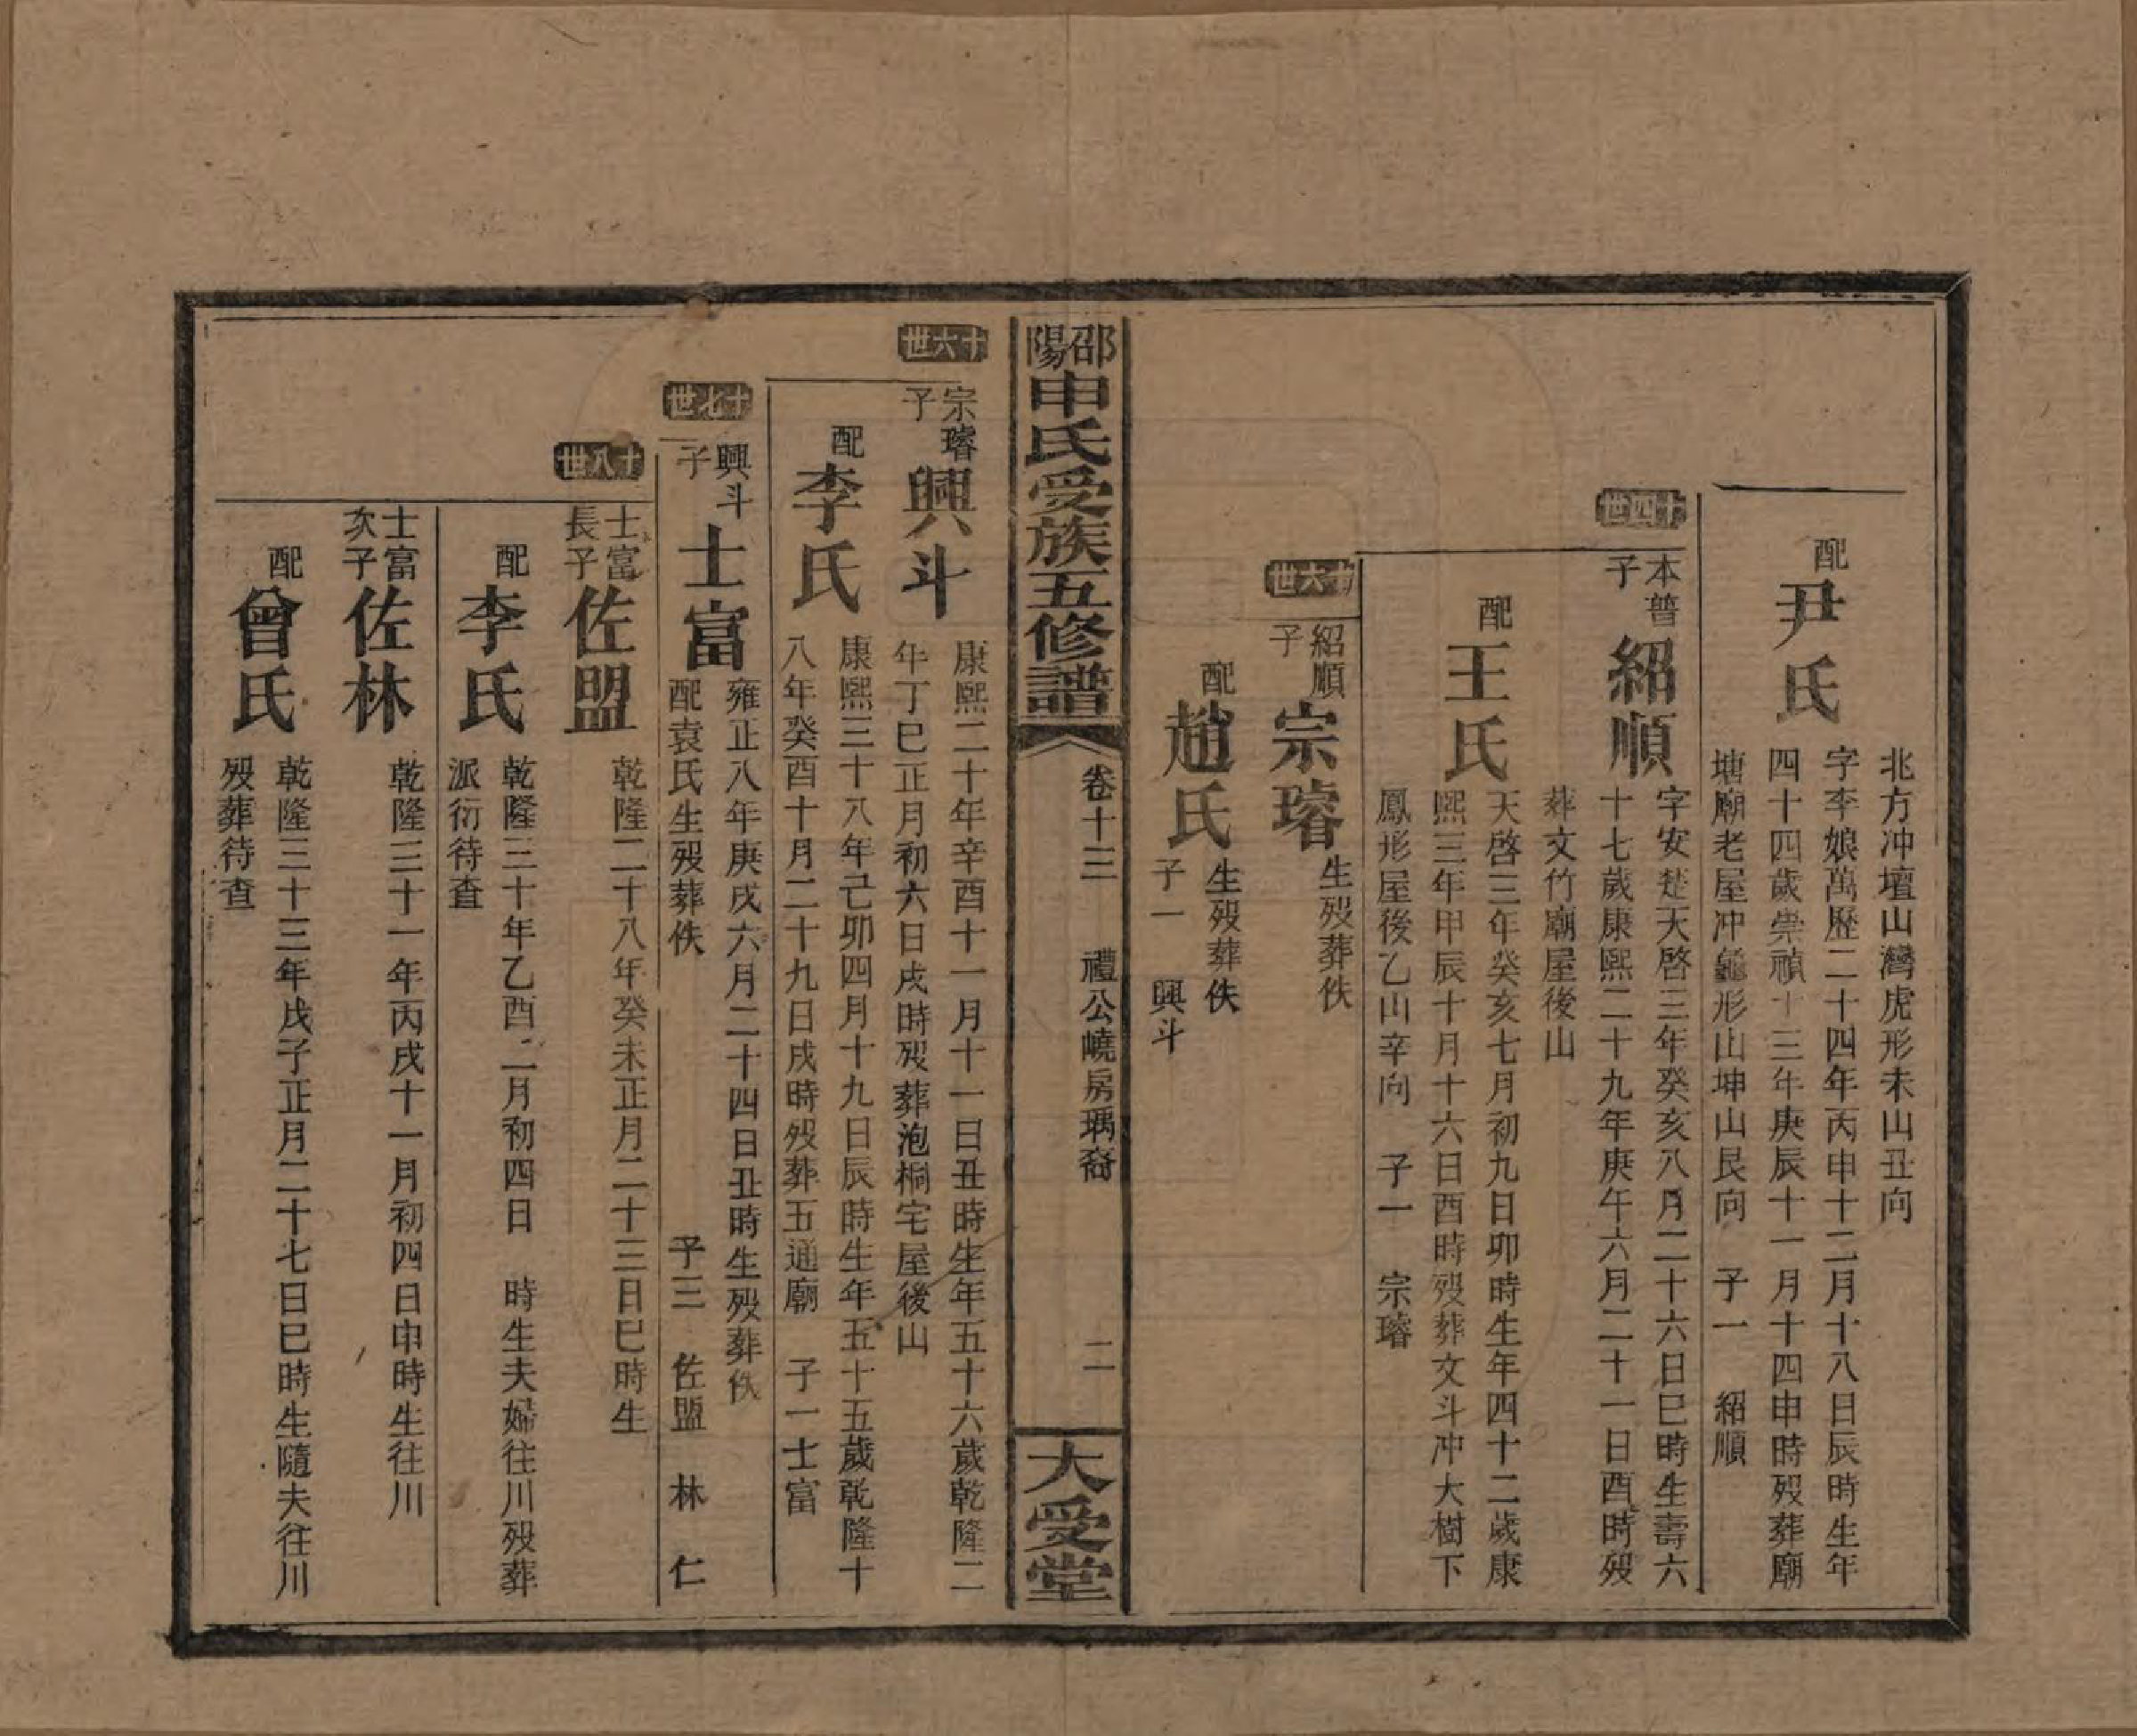 北方冲壇山灣虎形未山丑向
配尹氏
字李娘萬歷二十四年丙申十二月十八日辰時生年
四十四歲崇禎十三年庚辰十一月十四申時歿葬廟
塘廟老屋冲龜形山坤山艮向 子一 紹順
十四世
本普子紹順
字安楚天啓三年癸亥八月二十六日巳時生壽六
十七歲康熙二十九年庚午六月二十一日酉時歿
葬文竹廟屋後山
配王氏
天啓三年癸亥七月初九日卯時生年四十二歲康
熙三年甲辰十月十六日酉時歿葬文斗冲大樹下
鳳形屋後乙山辛向 子一 宗璿
十六世
紹順子宗璿
生歿葬佚
配趙氏
生歿葬佚
子一 興斗
邵陽申氏受族五修譜
卷十三 禮公嶢房瑀裔 二
大受堂
十六世
宗璿子興斗
康熙二十年辛酉十一月十一日丑時生年五十六歲乾隆二
年丁巳正月初六日戌時歿葬泡桐宅屋後山
配李氏
康熙三十八年己卯四月十九日辰時生年五十五歲乾隆十
八年癸酉十月二十九日戌時歿葬五通廟 子一士富
十七世
興斗子士富
雍正八年庚戌六月二十四日丑時生歿葬佚
配袁氏生歿葬佚 子三 佐盟 林 仁
十八世
士富長子佐盟
乾隆二十八年癸未正月二十三日巳時生
配李氏
乾隆三十年乙酉二月初四日 時生夫婦往川歿葬
派衍待查
士富次子佐林
乾隆三十一年丙戌十一月初四日申時生往川
配曾氏
乾隆三十三年戊子正月二十七日巳時生隨夫往川
歿葬待查